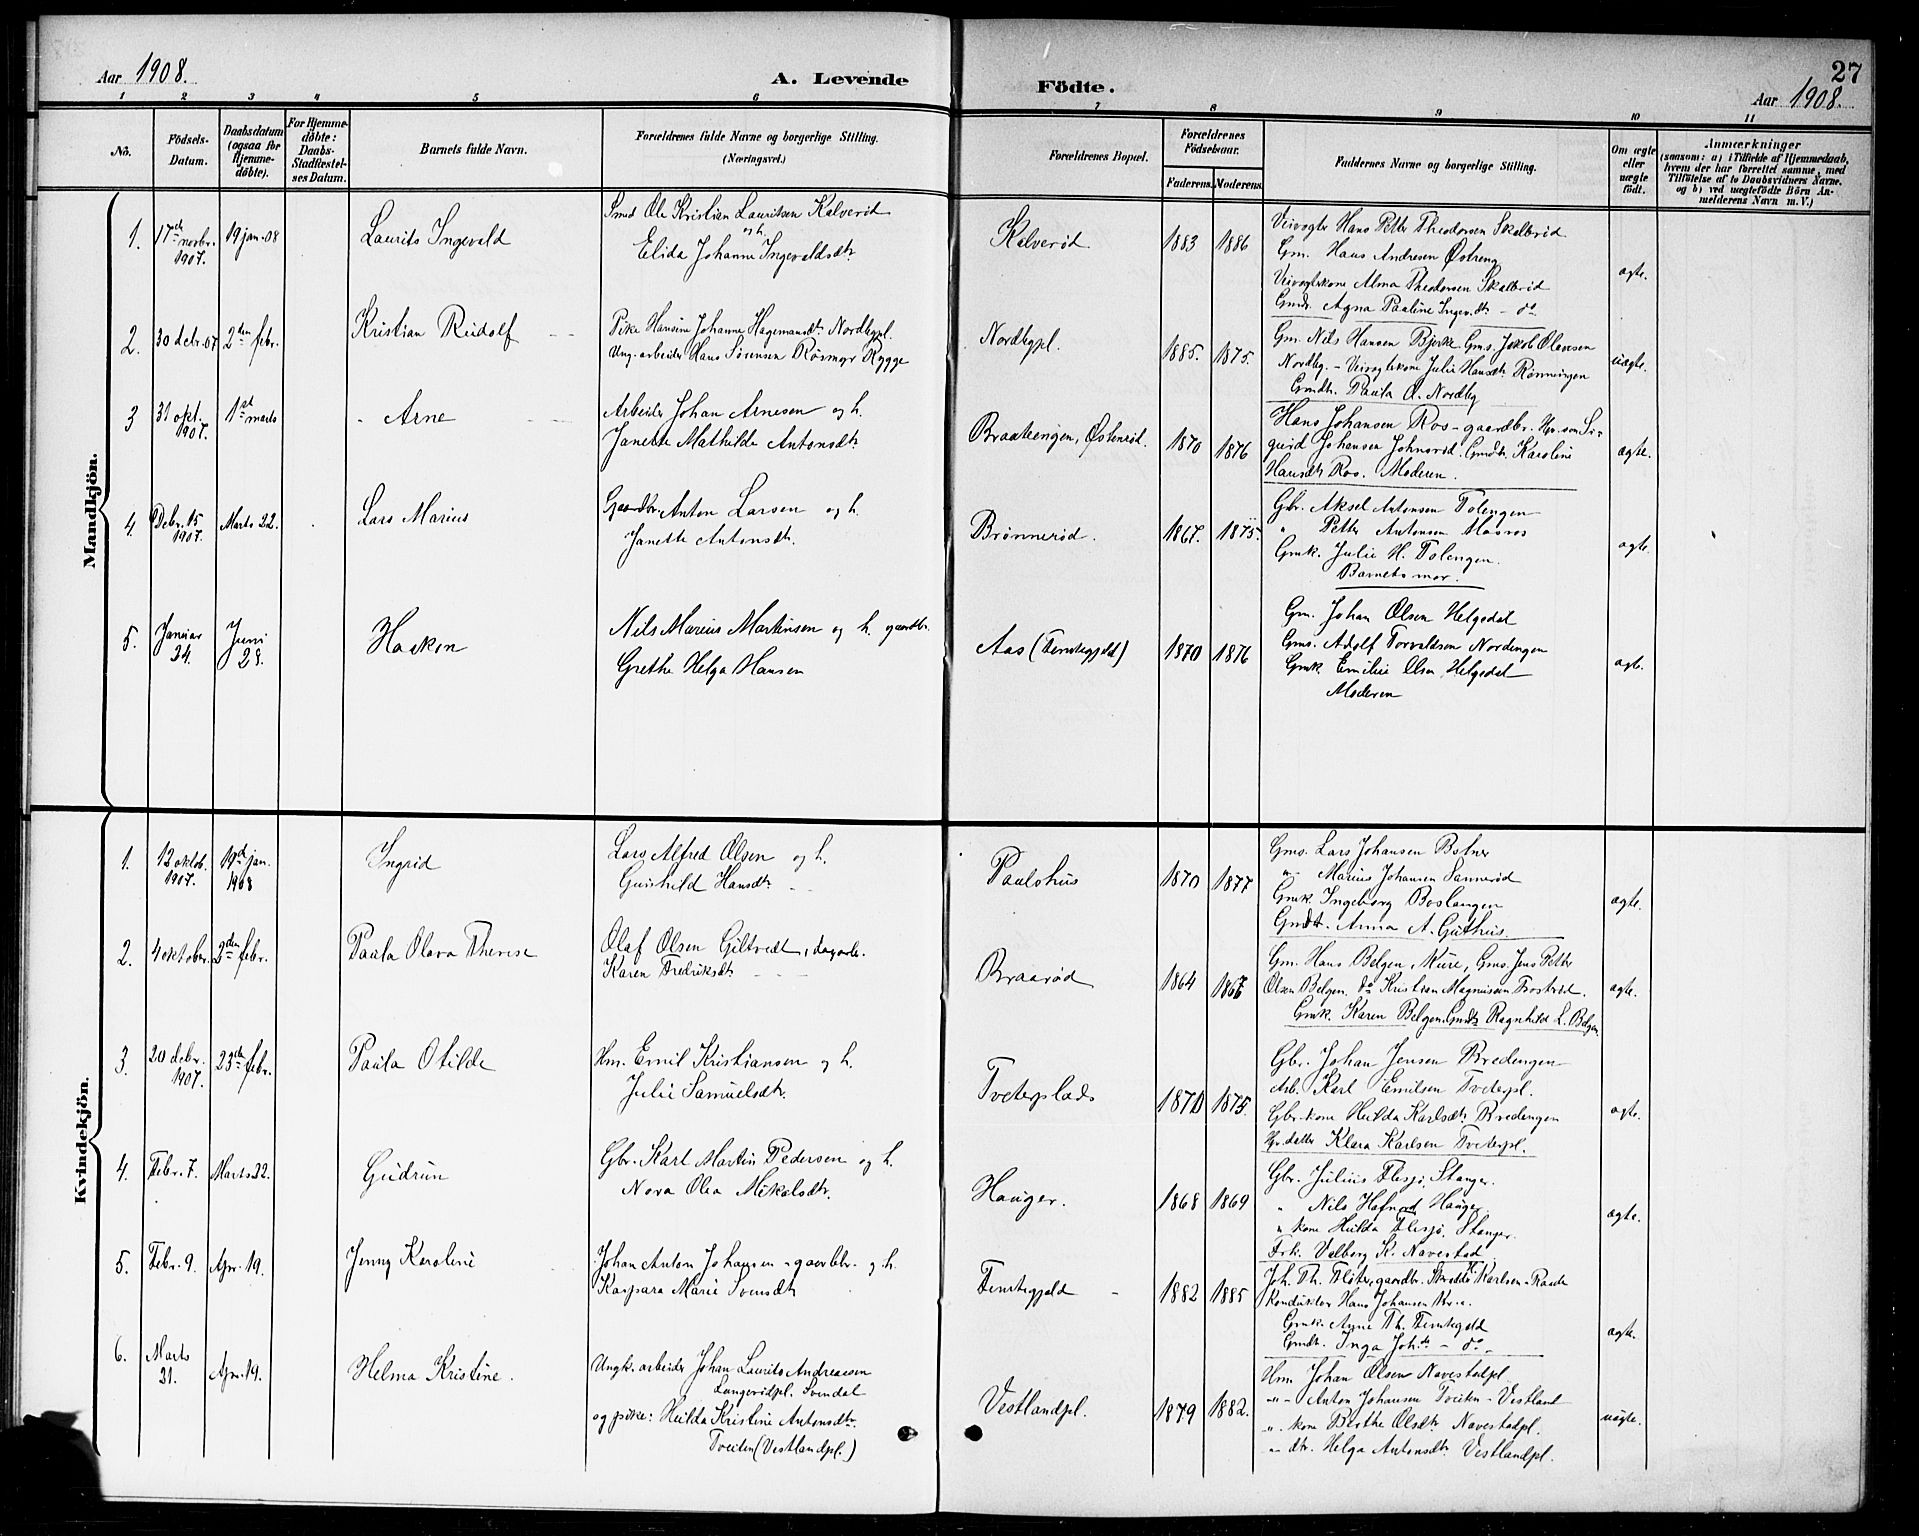 Aar 1908.
A. Levende
Födte.
27
Aar 1908.
1 2 3 4 5 6 7 8 9 10 11
No.
Födsels-Datum.
Daabsdatum (ogsaa for Hjemmedöbte).
For Hjemmedöbte: Daabs-Stadfæstelses Datum.
Barnets fulde Navn.
Forældrenes fulde Navne og borgerlige Stilling.
(Næringsvei.)
Forældrenes Bopæl.
Forældrenes Födselsaar.
Faderens. Moderens.
Faddernes Navne og borgerlige Stilling.
Om ægte eller uægte födt.
Anmærkninger
(saasom: a) i Tilfælde af Hjemmedaab, hvem der har forrettet samme, med Tilföielse af to Daabsvidners Navne, og b) ved uægtefödte Börn Anmelderens Navn m. V.)
Mandkjön.
1. 17de novbr. 1907. 19 jan. 08 Laurits Ingevald
Smed Ole Kristian Lauritsen Kalverød
og h.
Elida Johanne Ingevaldsdtr.
Kalverød. 1883 1886
Veivogter Hans Petter Theodorsen Skalbrød
Gm. Hans Andresen Østreng
Veivogterkone Alma Theodorsen Skalbrød
Gmdr. Agna Pauline Ingevdtr - do
ægte.
2. 30 debr. 07 2den febr. Kristian Rudolf
Pike Hansine Johanne Hagemansdtr. Nordbypl.
Ung. arbeider Hans Sørensen Røsmyr Rygge
Nordbypl. 1885. 1875.
Gm. Nils Hansen Bjerke. Gms. Jakob Olavesen
Nordby. - Veivogterkone Julie Hansdtr. Rønningen
Gmdtr. Paula O. Nordby
uægte.
3 31 okt. 1907. 1st marts Arne
Arbeider Johan Arnesen og h.
Janette Mathilde Antonsdtr.
Braatenengen, Østenrød. 1870 1876
Hans Johansen Ros - gaardbr. Gbr. søn Si-
gurd Johansen Johnsrød. Gmdtr. Karoline
Hansdtr. Ros. Moderen.
ægte.
4. Debr. 15 1907. Marts 22. Lars Marius
Gaardbr. Anton Larsen og h.
Janette Antonsdtr.
Brønnerød. 1867. 1875.
Gbr. Aksel Antonsen Tolengen
" Petter Antonsen Mosros
Gmk. Julie H. Tolengen.
Barnets mor.
ægte.
5. Januar 24. Juni 28. Haakon
Nils Marius Martinsen og h. gaardbr.
Grethe Helga Hansen
Aas (Tomtegjeld) 1870 1876
Gm. Johan Olsen Helgedal
Gms. Adolf Torvaldsen Nordengen
Gmk. Emilie Olsen Helgedal
Moderen
ægte.
Kvindekjön.
1. 12 oktob. 1907. 19de jan. 1908 Ingrid
Lars Alfred Olsen og h.
Gunhild Hansdtr.
Paulshus 1870 1877
Gms. Lars Johansen Botner
" Marius Johansen Sannerød
Gmk. Ingeborg Boslangen
Gmdtr. Anna A. Guthus
ægte.
2. 4 oktober. 2den febr. Paula Olava Therese
Olaf Olsen Giltvedt, dagarb.
Karen Fredriksdtr.
Braarød 1864 1866
Gm. Hans Belgen Mure, Gms. Jens Petter
Olsen Belgen. do Kristian Magnusen Trostrød.
Gmk. Karen Belgen. Gmdtr. Ragnhild L. Belgen.
ægte.
3. 20 debr. 1907. 23de febr. Paula Otilde
Hm. Emil Kristiansen og h.
Julie Samuelsdtr.
Tveterplads 1870 1875.
Gbr. Johan Jensen Bredengen
Arb. Karl Emilsen Tveterpl.
Gbr. kone Hulda Karlsdtr. Bredengen
Gbr. datter Klara Karlsen Tveterpl.
ægte.
4. Febr. 7. Marts 22. Gudrun
Gbr. Karl Martin Pedersen og h.
Nora Olea Mikalsdtr.
Hauger. 1868 1869
Gbr. Julius Flesjø, Stanger.
" Nils Hafnord Hauger.
" kone Hulda Flesjø, Stanger.
Frk. Valborg K. Navestad
ægte.
5. Febr. 9. Apr. 19. Jenny Karoline
Johan Anton Johansen - gaardbr. og h.
Kaspara Marie Svensdtr
Tomtegjeld 1882 1885
Joh. Th. Fløter, gaardbr. Karlsen - Raade
Konduktør Hans Johansen Kr.a.
Gmk. Agne Th. Tomtegjeld
Gmdt. Inga Joh.dtr - do -
ægte.
6. Marts 21. Apr. 19. Helma Kristine.
Ungk. arbeider Johan Laurits Andreassen
Langerødpl. Svendal
og pike: Hulda Kristine Antonsdtr.
Tveiten (Vestlandpl.)
Vestlandpl. 1879 1882.
Hm. Johan Olsen Navestadpl.
" Anton Johansen Tveiten - Vestland
" kone Berthe Olsdtr. Navestadpl.
" dtr. Helga Antonsdtr. Vestlandpl.
uægte.